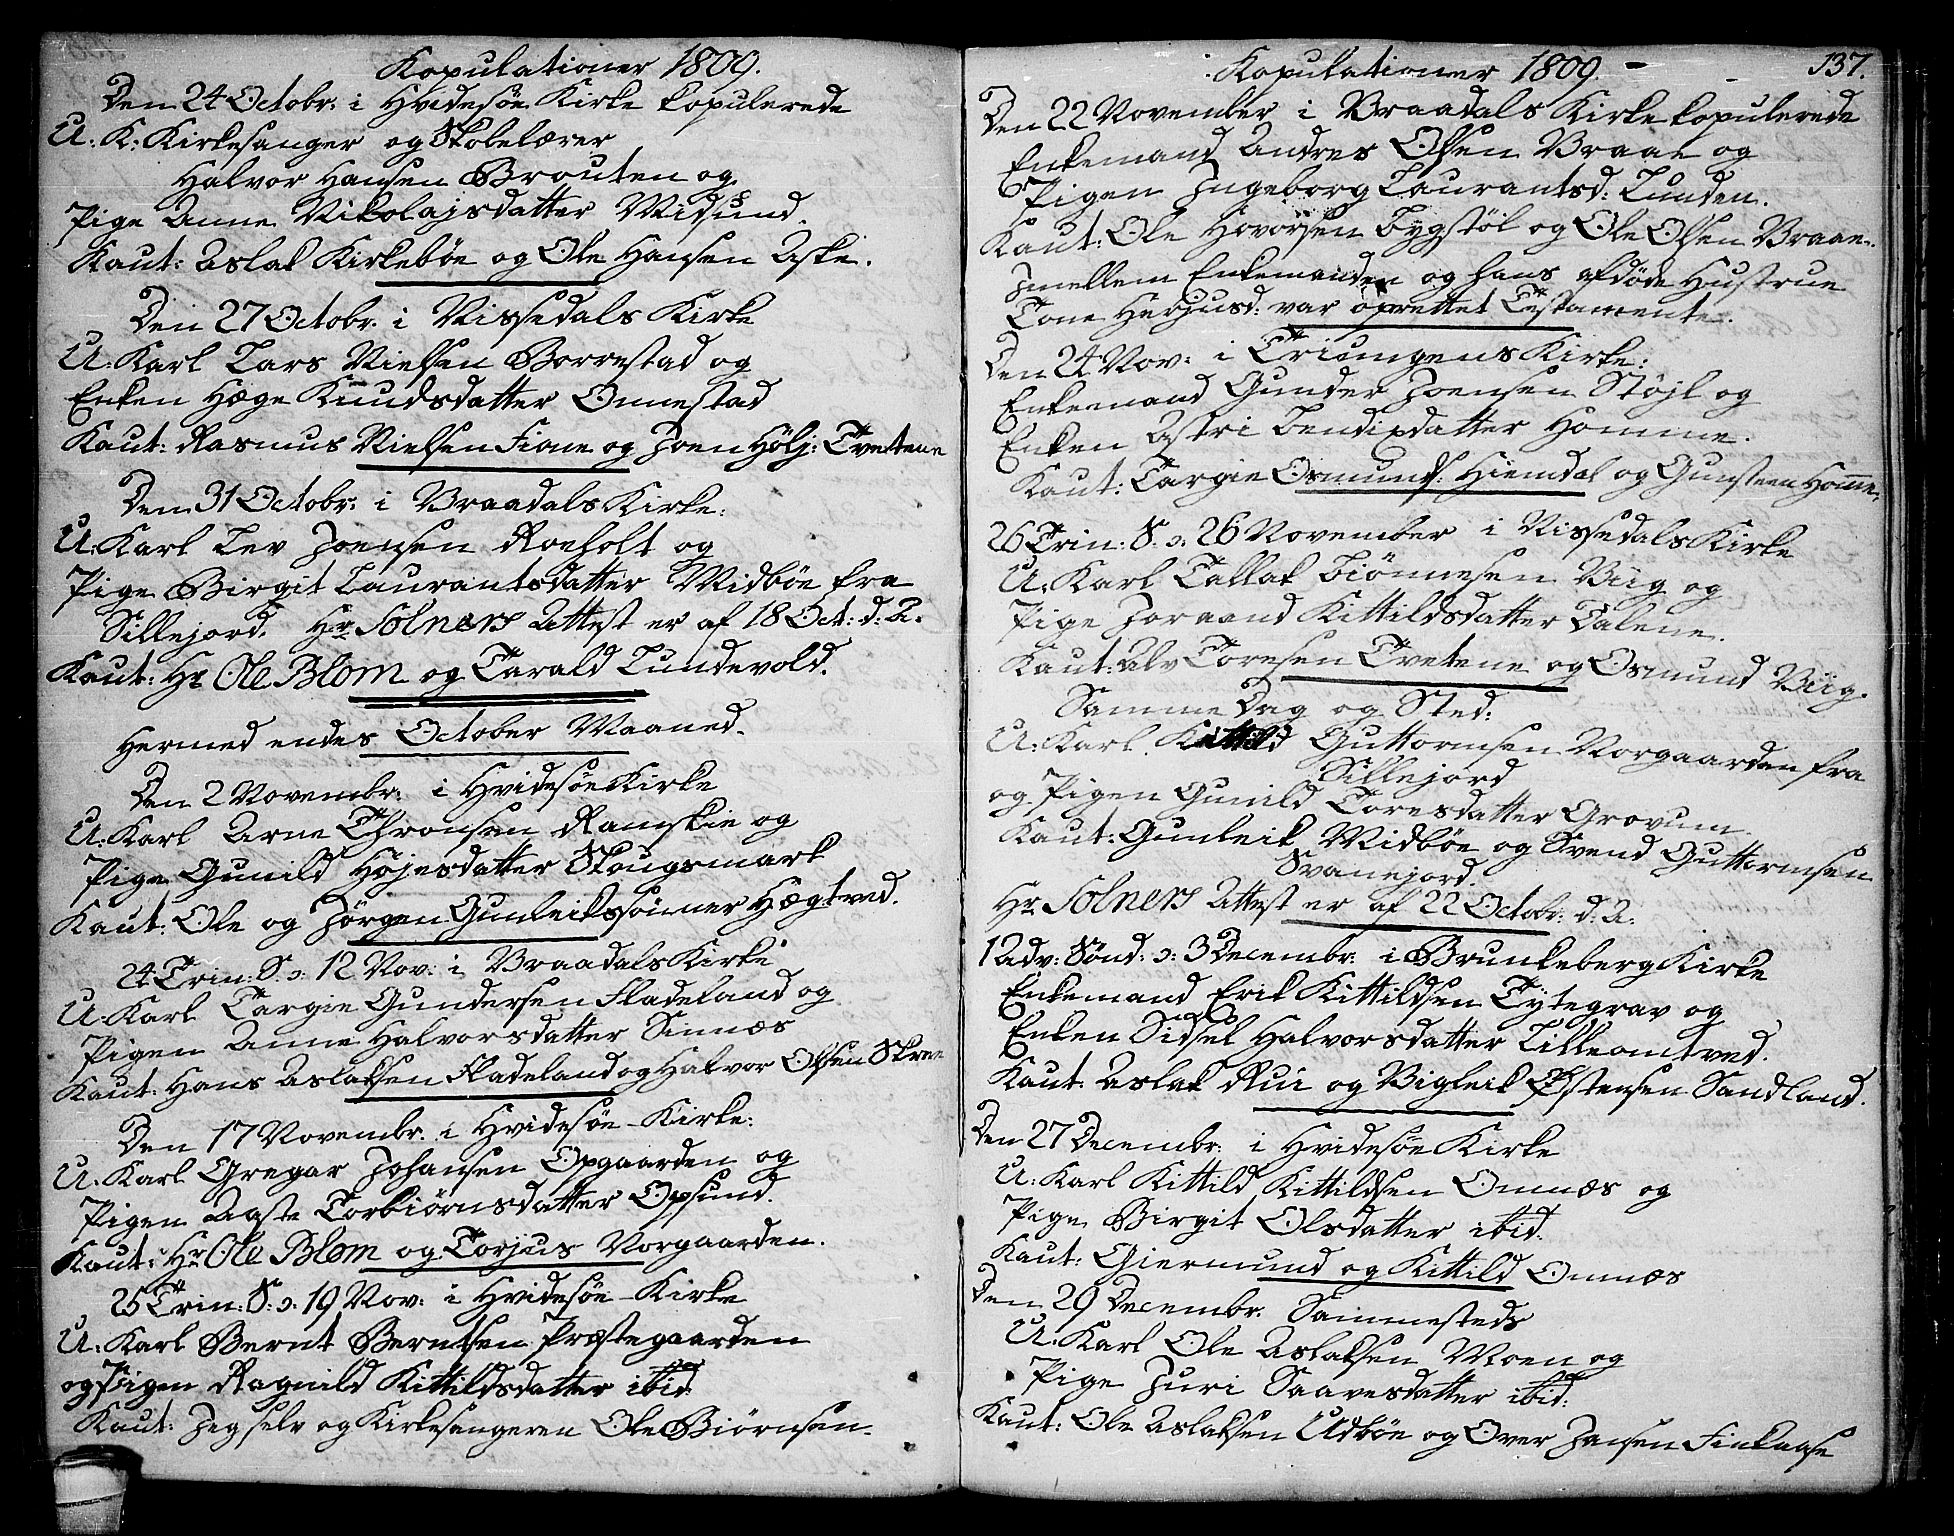 Kopulationer 1809.
Den 24 Octobr. i Hvidesøe Kirke kopulerede
U. K: Kirkesanger og Skolelærer
Halvor Hansen Brouten og
Pige Anne Nikolajsdatter Midsund.
Kaut: Aslak Kirkebøe og Ole Hansen Aske.
Den 27 Octobr. i Nissedals Kirke
U: Karl Lars Nielsen Borrestad og
Enken Hæge Knudsdatter Onnestad
Kaut: Rasmus Nielsen Fione og Joen Hölj: Tveitene
Den 31 Octobr. i Braadals Kirke:
U: Karl Lev Joensen Roeholt og
Pige Birgit Laurantsdatter Midbøe fra
Sillejord. Hr Solners Attest er af 18 Oct: d: A.
Kaut: Hr Ole Blom og Tarald Lundevold.
Hermed endes October Maaned.
Den 2 Novembr. i Hvidesøe Kirke
U: Karl Arne Thronsen Ramskie og
Pige Gunild Höjesdatter Skougsmark
Kaut: Ole og Jørgen Gunleikssønner Hægtved.
24 Trin: S. ɔ: 12 Nov: i Braadals Kirke
U: Karl Targie Gundersen Fladeland og
Pigen Anne Halvorsdatter Sinnæs
Kaut: Hans Aslaksen Fladeland og Halvor Olsen Skree
Den 17 Novembr. i Hvidesøe Kirke:
U. Karl Gregar Johansen Opgaarden og
Pigen Aaste Torbiørnsdatter Opsund.
Kaut: Hr Ole Blom og Torjus Norgaarden.
25 Trin: S: ɔ: 19 Nov: i Hvidesøe Kirke
U. Karl Bernt Berntsen Præstegaarden
og Pigen Ragnild Kittildsdatter ibid:
Kaut: Jeg selv og Kirkesangeren Ole Biørnsen.
Kopulationer 1809. 137.
Den 22 November i Braadals Kirke kopulerede
Enkemand Andres Olsen Braae og
Pigen Ingeborg Laurantsd: Lunden.
Kaut: Ole Hovorsen Bygstöl og Ole Olsen Braae.
Imellem Enkemanden og hans afdøde Hustrue
Tone Herjusd: var oprettet Testamente.
Den 24 Nov: i Triungens Kirke:
Enkemand Gunder Joensen Støjl og
Enken Astri Bendixdatter Homme.
Kaut: Targie Osmunds: Hiemdal og Gunsteen Homme.
26 Trin: S. ɔ: 26 November i Nissedals Kirke
U. Karl Tallak Biönnesen Viig og
Pige Joraand Kittildsdatter Dalene.
Kaut: Alv Toresen Tvetene og Osmund Viig.
Samme Dag og Sted:
U: Karl Kittild Guttormsen Norgaarden fra
Sillejord
og Pigen Gunild Toresdatter Grovum
Kaut: Gunleik Midbøe og Svend Guttormsen
Svanejord.
Hr Solners Attest er af 22 Octobr. d: A.
1 Adv: Sønd: ɔ: 3 Decembr. i Brunkeberg Kirke
Enkemand Erik Kittildsen Tytegrav og
Enken Sidsel Halvorsdatter Lilleomtved.
Kaut: Aslak Rui og Bigleik Østensen Sandland.
Den 27 Decembr. i Hvidesøe Kirke
U: Karl Kittild Kittildsen Omnæs og
Pige Birgit Olsdatter ibid.
Kaut: Giermund og Kittild Omnæs
Den 29 Decembr. Sammesteds
U: Karl Ole Aslaksen Moen og
Pige Juri Saavesdatter ibid:
Kaut: Ole Aslaksen Udbøe og Over Jansen Finkaase